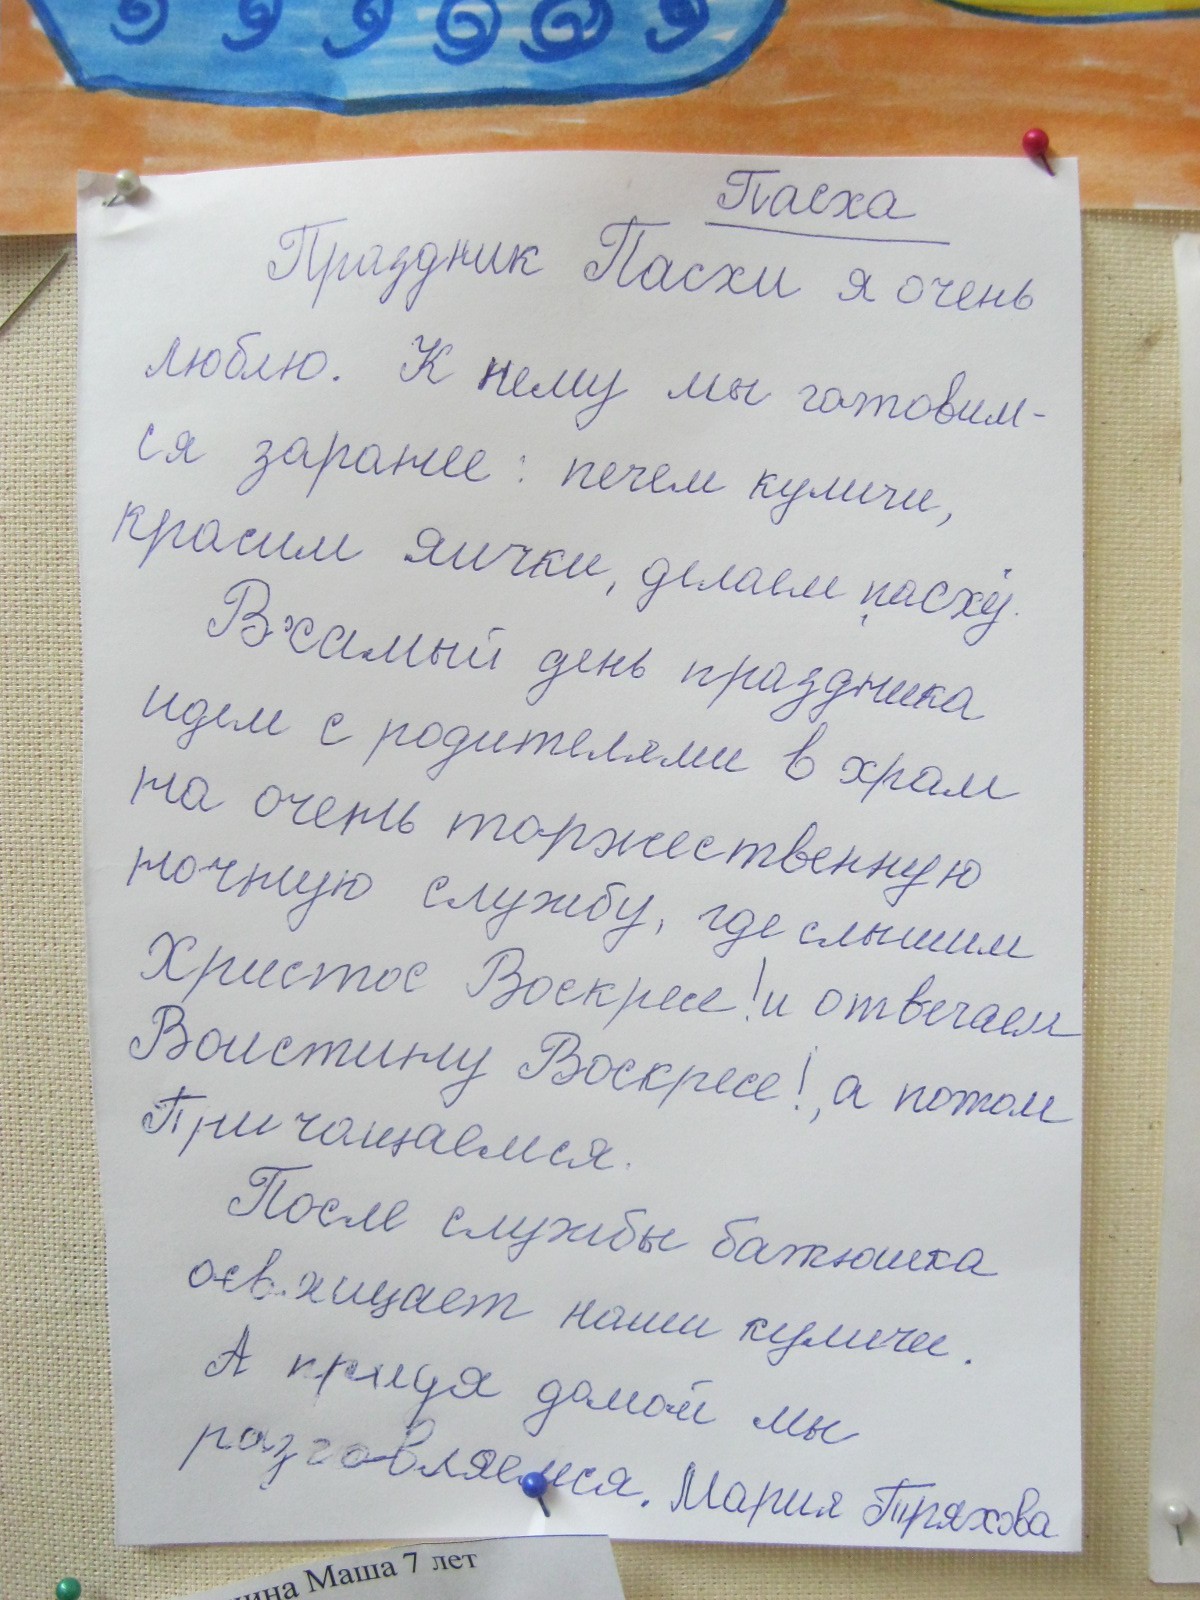 Пасха
Праздник Пасхи я очень
люблю. К нему мы готовим-
ся заранее: печем куличи,
красим яички, делаем пасху.
В самый день праздника
идем с родителями в храм
на очень торжественную
ночную службу, где слышим
Христос Воскресе! и отвечаем
Воистину Воскресе!, а потом
Причащаемся.
После службы батюшка
наши куличи.
А придя домой мы
разговляемся. Мария Тряхова
Маша 7 лет